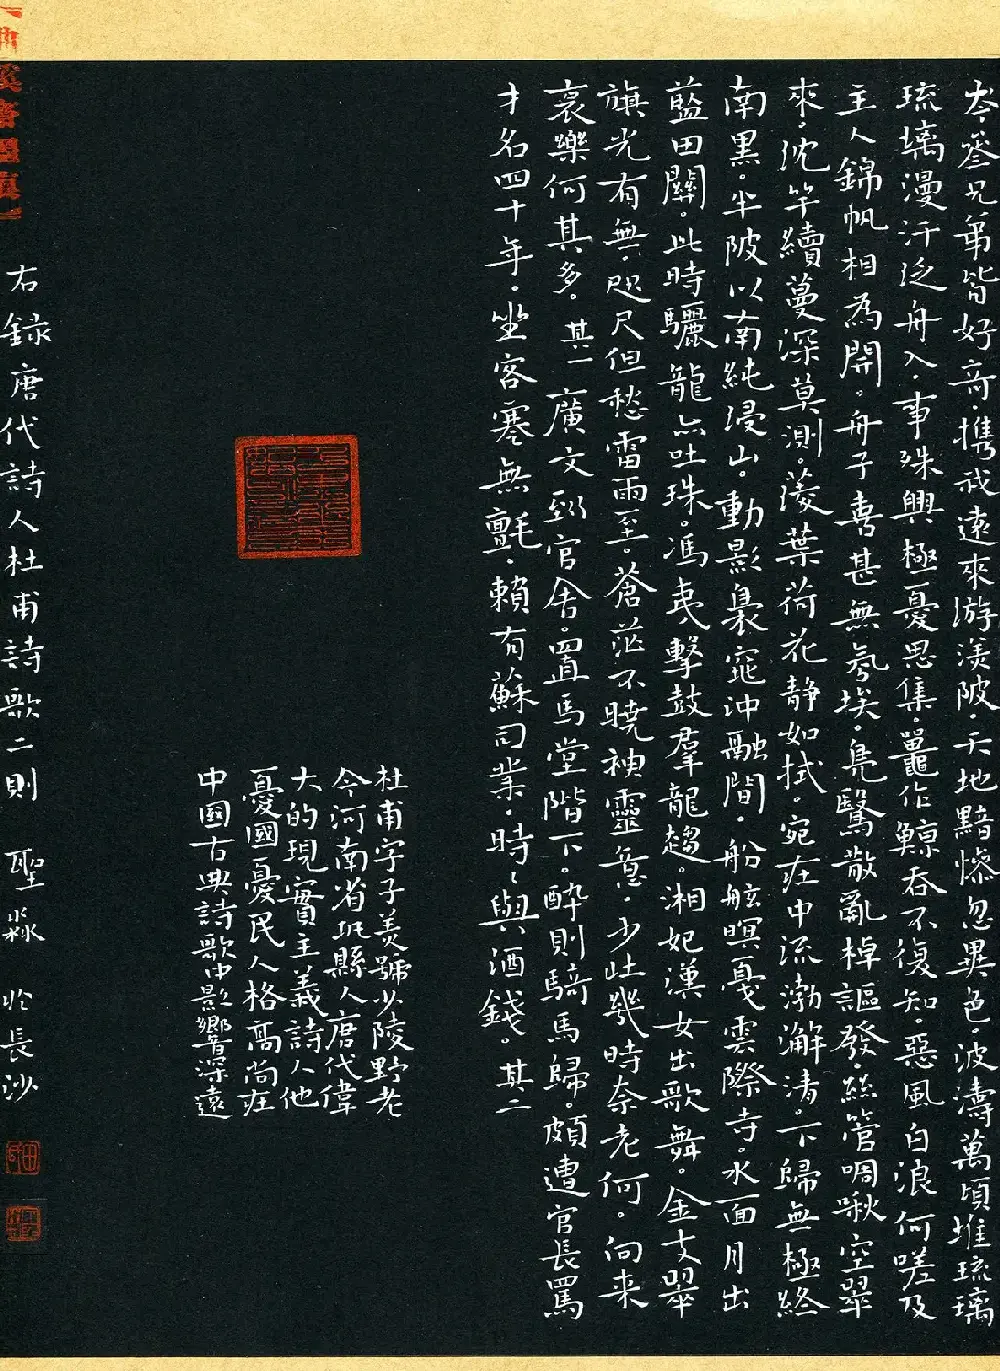 岑參兄弟皆好奇。攜我遠來游渼陂。天地黯慘忽異色。波濤萬頃堆琉璃
琉璃漫汗泛舟入。事殊興極憂思集。鼉作鯨吞不復知。惡風白浪何嗟及
主人錦帆相為開。舟子喜甚無氛埃。鳧鷖散亂棹謳發。絲管啁啾空翠
來。沈竿續蔓深莫測。菱葉荷花靜如拭。宛在中流渤澥清。下歸無極終
南黑。半陂以南純浸山。動影裊窕沖融間。船舷暝戛雲際寺。水面月出
藍田關。此時驪龍亦吐珠。馮夷擊鼓羣龍趨。湘妃漢女出歌舞。金支翠
旗光有無。咫尺但愁雷雨至。蒼茫不曉神靈意。少壯幾時奈老何。向來
哀樂何其多。其一 廣文到官舍。置馬堂階下。醉則騎馬歸。頗遭官長罵
才名四十年。坐客寒無氈。賴有蘇司業。時〻與酒錢。其二
杜甫字子美號少陵野老
今河南省巩縣人唐代偉
大的現實主義詩人他
憂國憂民人格高尚在
中國古典詩歌中影響深遠
右録唐代詩人杜甫詩歌二則 聖淼 於長沙